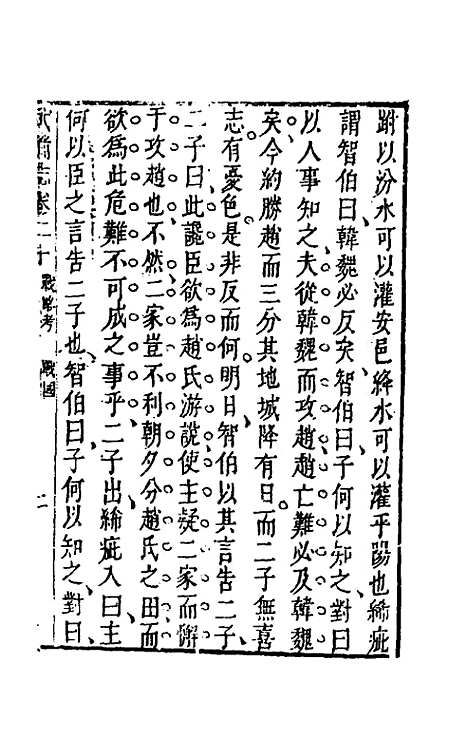 跗以汾水可以灌安邑絳水可以灌平陽也絺疵
謂智伯曰韓魏必反矣智伯曰子何以知之對曰
以人事知之夫從韓魏而攻趙趙亡難必及韓魏
矣今約勝趙而三分其地城降有日而二子無喜
志有憂色是非反而何明日智伯以其言告二子
二子曰此讒臣欲爲趙氏游說使主疑二家而懈
于攻趙也不然二家豈不利朝夕分趙氏之田而
欲爲此危難不可成之事乎二子出絺疵入曰主
何以臣之言告二子也智伯曰子何以知之對曰
武備志卷二十 戰略考 戰國 二